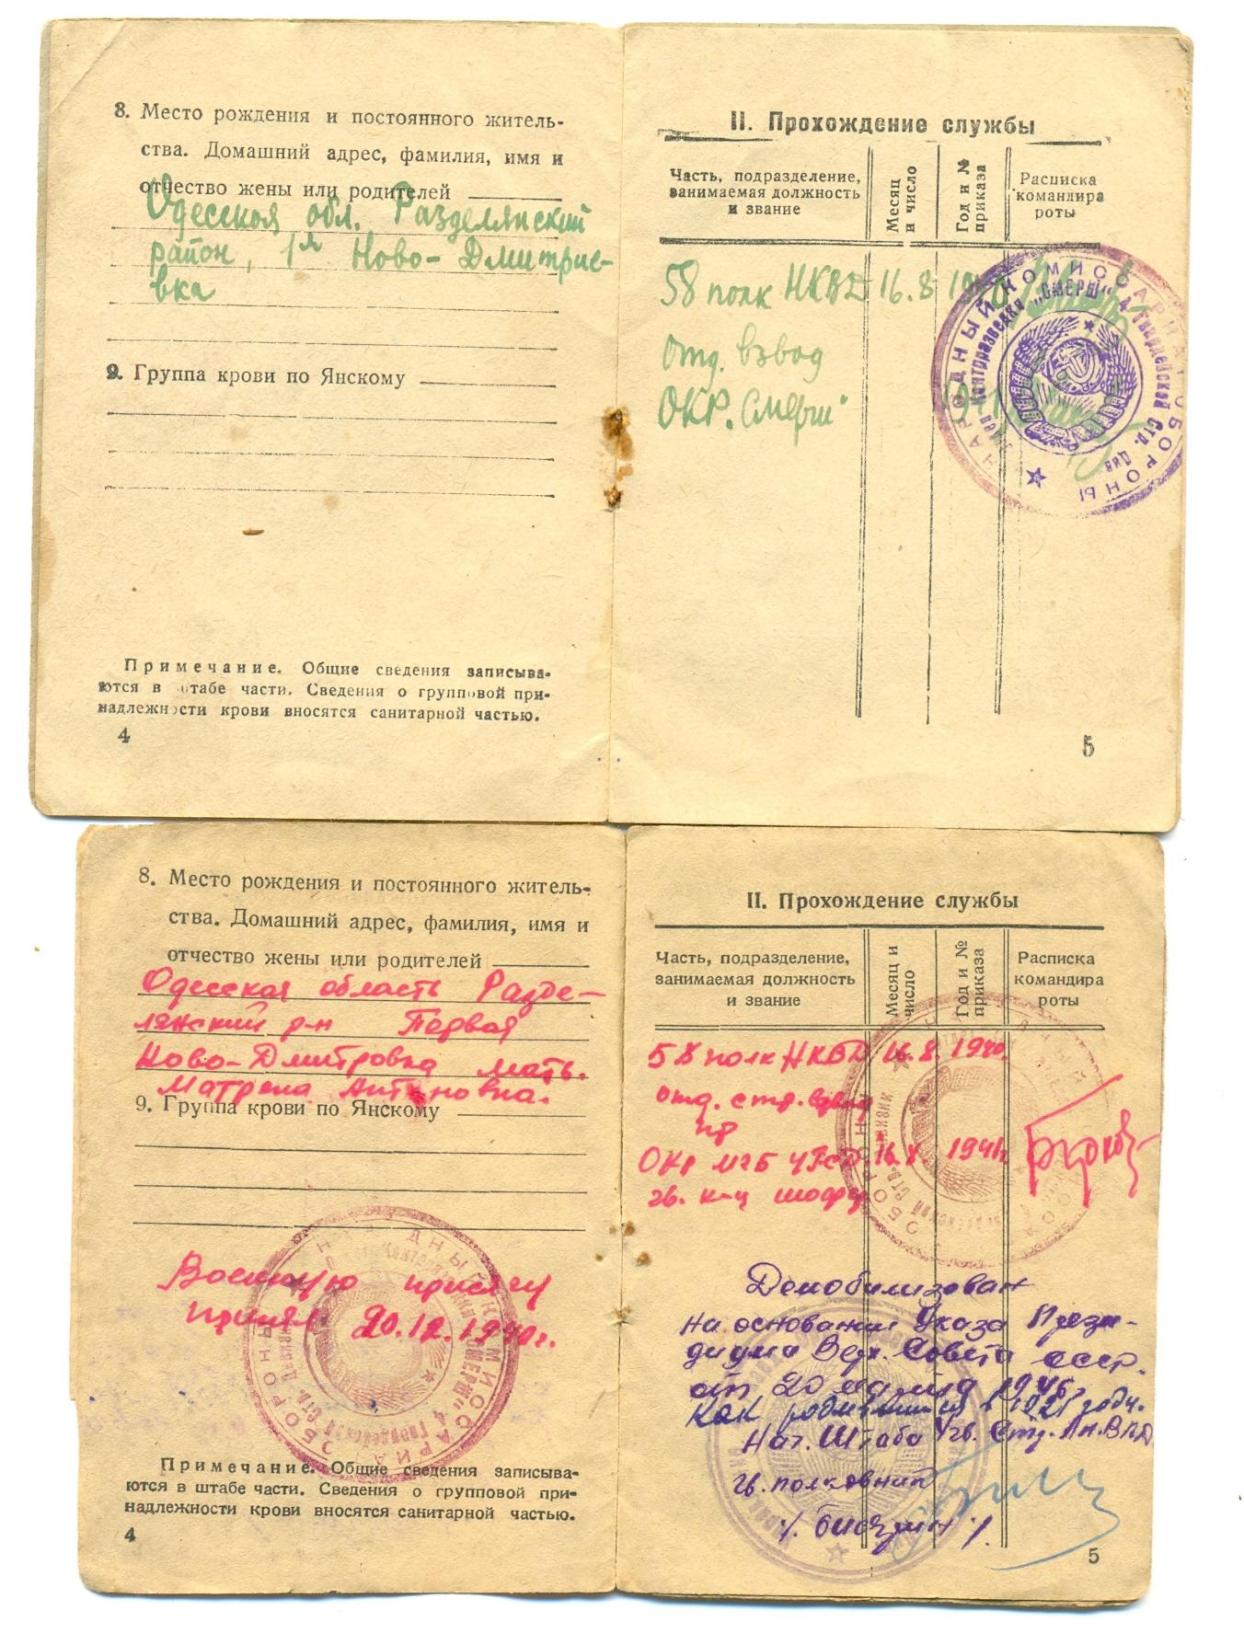 8. Место рождения и постоянного житель-
ства. Домашний адрес, фамилия, имя и
отчество жены или родителей
Одесская обл. Разделянский
район, 1я Ново-Дмитрие-
вка
9. Группа крови по Янскому
Примечание. Общие сведения записыва-
ются в штабе части. Сведения о групповой при-
надлежности крови вносятся санитарной частью.
4
II. Прохождение службы
Часть, подразделение,
занимаемая должность
и звание
Месяц
и число
Год и №
приказа
Расписка
командира
роты
58 полк НКВД 16.8
Отд. взвод
ОКР. Смерш"
НАРОДНЫЙ КОМИССАРИАТ ОБОРОНЫ
Контрразведки „СМЕРШ" 4 Гвардейской Стр. Див
5
8. Место рождения и постоянного житель-
ства. Домашний адрес, фамилия, имя и
отчество жены или родителей
Одесская область Разде-
лянский р-н Первая
Ново-Дмитровка мать.
Матрена Антоновна.
9. Группа крови по Янскому
Военную присягу
принял 20.12.1940г.
Примечание. Общие сведения записыва-
ются в штабе части. Сведения о групповой при-
надлежности крови вносятся санитарной частью.
4
II. Прохождение службы
Часть, подразделение,
занимаемая должность
и звание
Месяц и
число
Год и №
приказа
Расписка
командира
роты
58 полк НКВД 16.8. 1940
отд. стр. взвод
ОКР МГБ
гв. к-ц шофер
Демобилизован
на основании Указа Прези-
диума Вер. Совета СССР.
от 20 марта 1946
как родившийся в 1921 году.
Нач. Штаба 4 гв. Стр.
гв. полковник
5